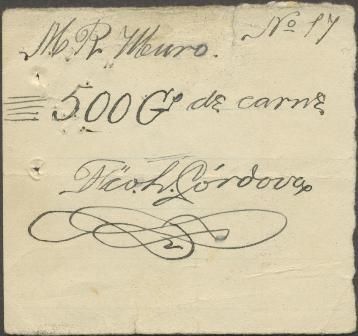 M R Muro. Nº 17
500 Gs de carne
Fco. L. Córdova